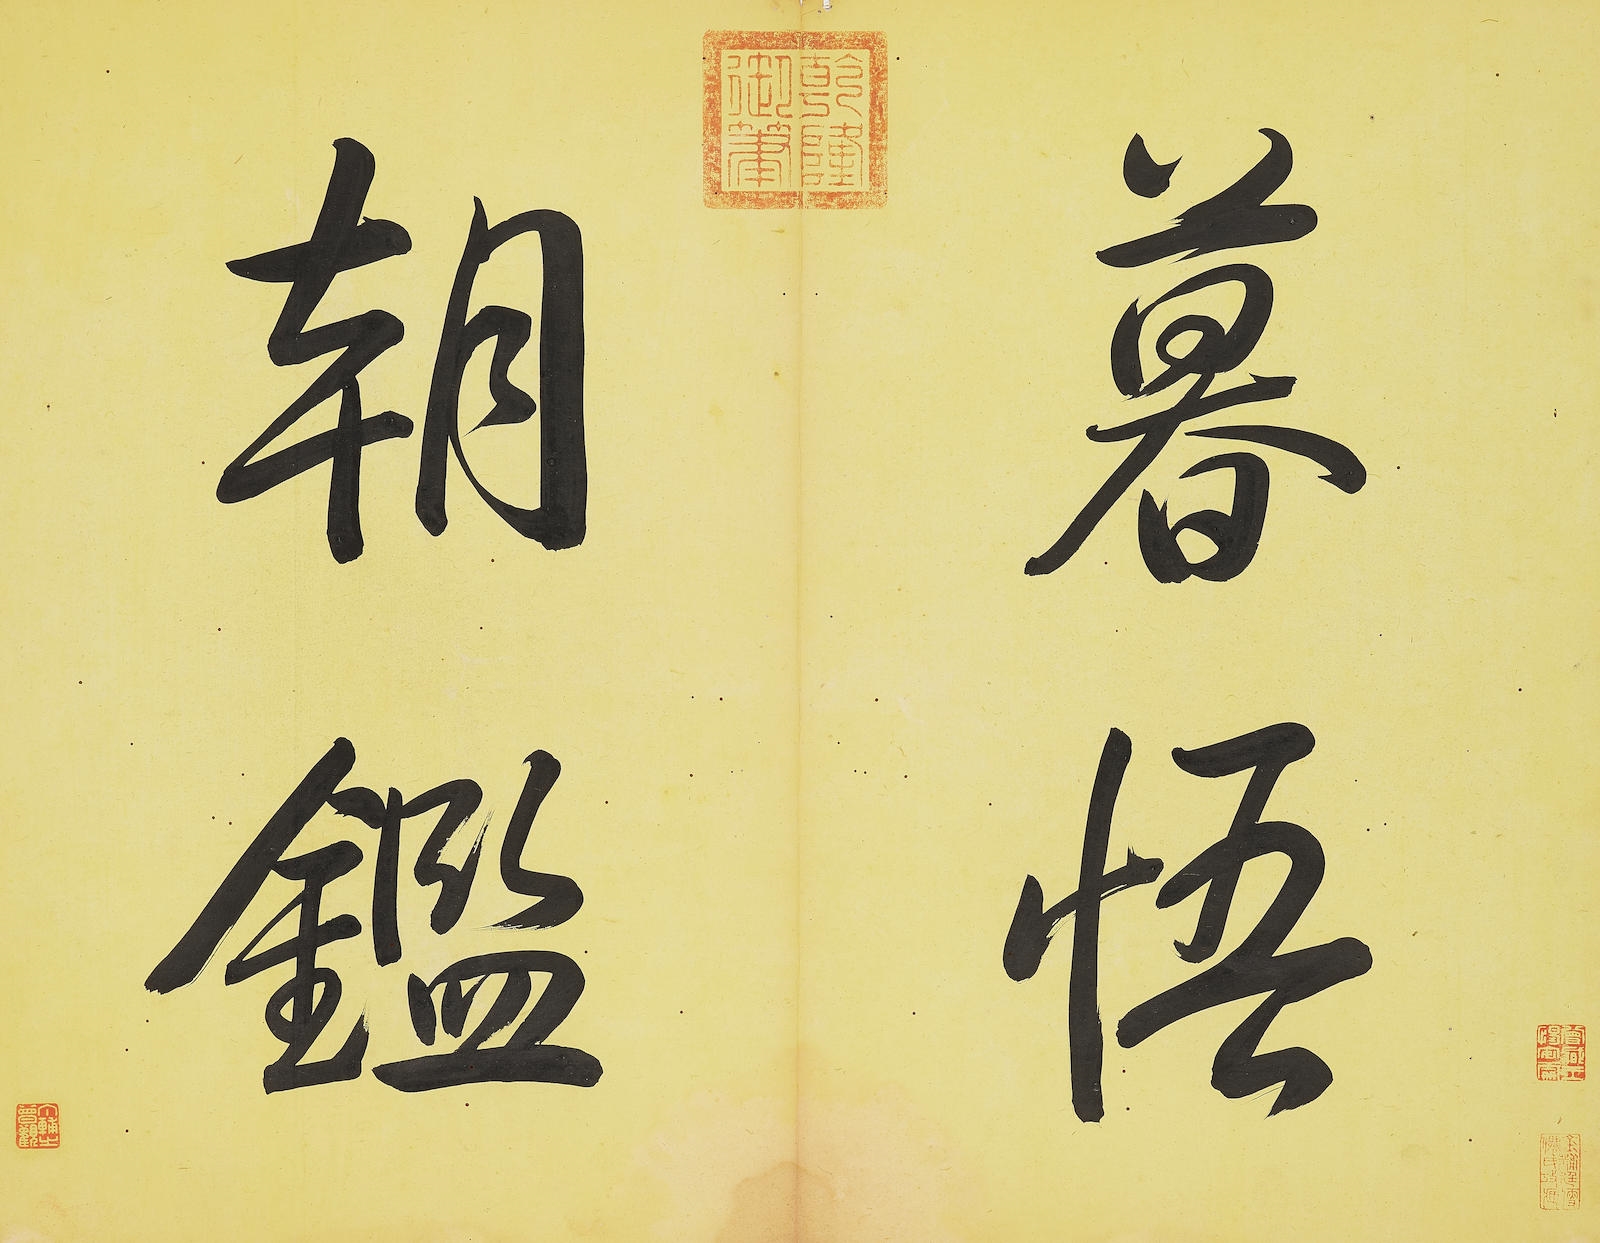 乾隆
御筆
暮悟
朝鑑